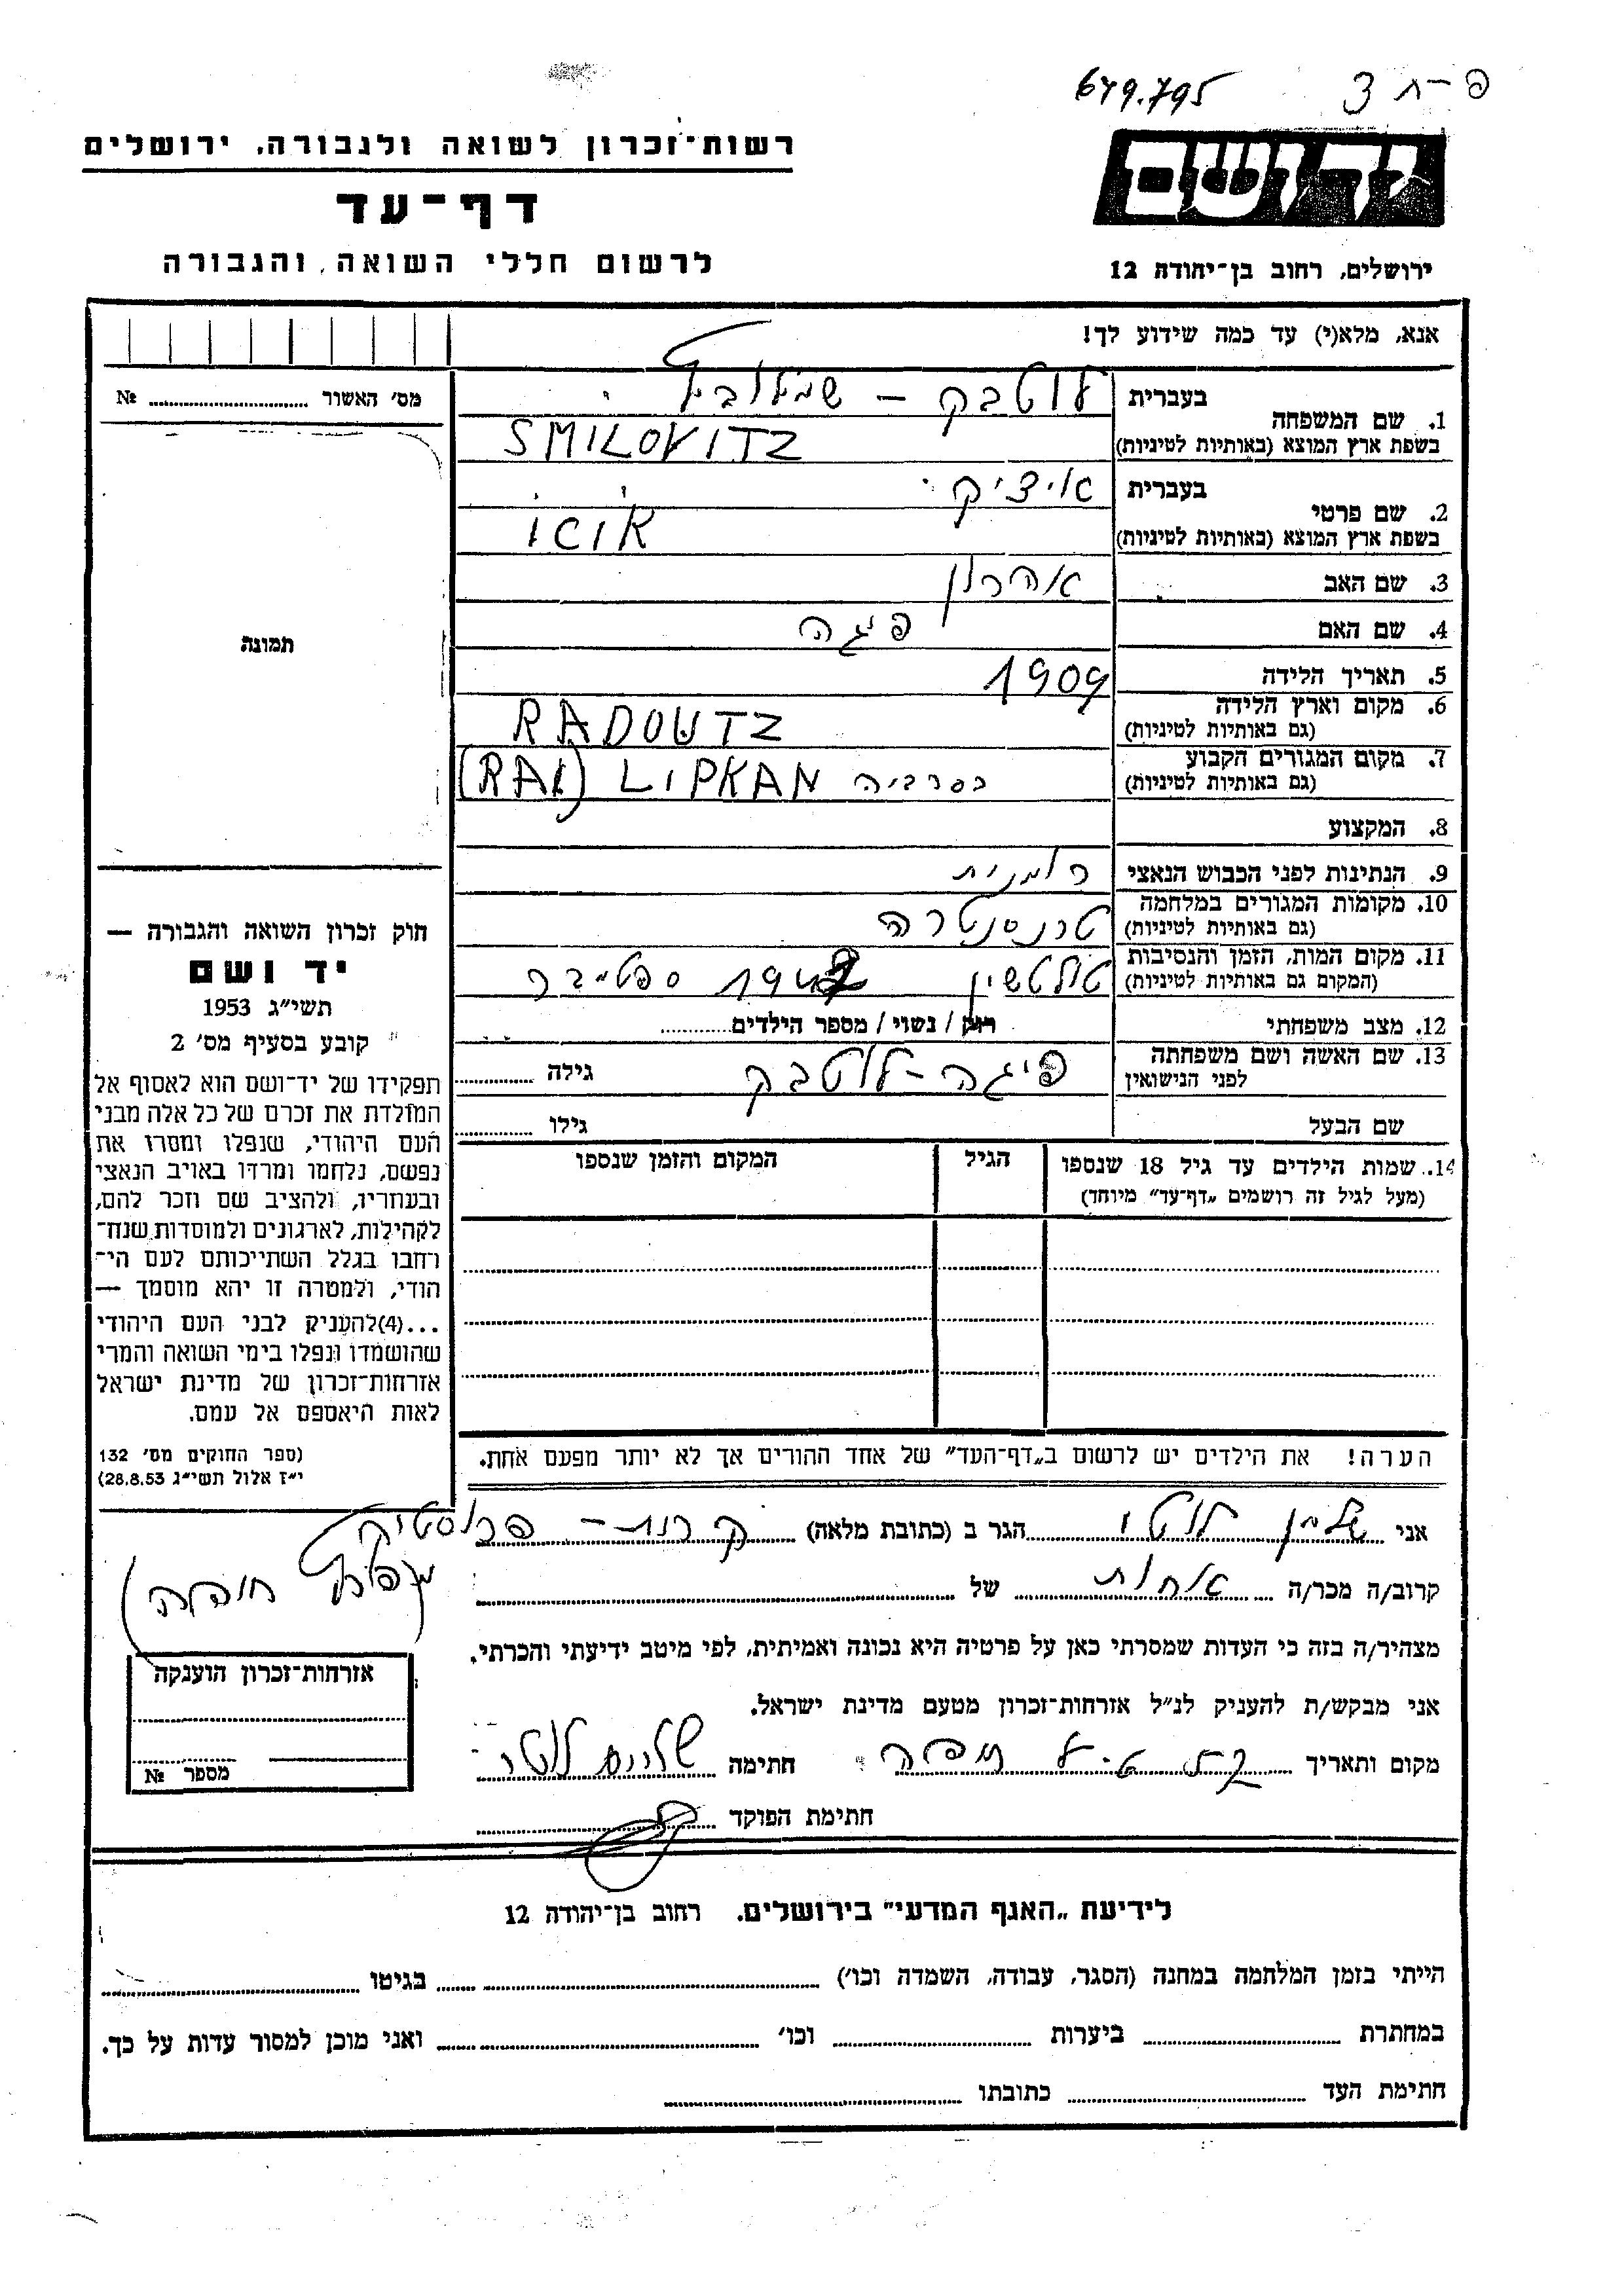 679.795 פ-ח 3
יד ושם
ירושלים, רחוב בן־יהודה 12
רשות־זכרון לשואה ולגבורה, ירושלים
דף־עד
לרשום חללי השואה והגבורה
אנא, מלא(י) עד כמה שידוע לך!
מס׳ האשור № 
תמונה
1. שם המשפחה
בעברית
לוטבק - שמילוביץ
בשפת ארץ המוצא (באותיות לטיניות)
SMILOVITZ
2. שם פרטי
בעברית
איציק
בשפת ארץ המוצא (באותיות לטיניות)
3. שם האב אהרון
4. שם האם פיגה
5. תאריך הלידה 1909
6. מקום וארץ הלידה
(גם באותיות לטיניות)
RADOUTZ
7. מקום המגורים הקבוע
(גם באותיות לטיניות)
בסרביה LIPKAN (RAI)
8. המקצוע
9. הנתינות לפני הכבוש הנאצי רומנית
10. מקומות המגורים במלחמה
(גם באותיות לטיניות)
טרנסנטרה
11. מקום המות, הזמן והנסיבות
(המקום גם באותיות לטיניות)
טולטשין 1942 ספטמבר
12. מצב משפחתי רווק / נשוי / מספר הילדים
13. שם האשה ושם משפחתה
לפני הנישואין
פיגה-לוטבק גילה
שם הבעל גילו
14. שמות הילדים עד גיל 18 שנספו
(מעל לגיל זה רושמים „דף־עד״ מיוחד)
הגיל
המקום והזמן שנספו
הערה! את הילדים יש לרשום ב„דף־העד״ של אחד ההורים אך לא יותר מפעם אחת.
חוק זכרון השואה והגבורה —
יד ושם
תשי״ג 1953
קובע בסעיף מס׳ 2
תפקידו של יד־ושם הוא לאסוף אל
המולדת את זכרם של כל אלה מבני
העם היהודי, שנפלו ומסרו את
נפשם, נלחמו ומרדו באויב הנאצי
ובעוזריו, ולהציב שם וזכר להם,
לקהילות, לארגונים ולמוסדות שנח־
רחבו בגלל השתייכותם לעם הי־
הודי, ולמטרה זו יהא מוסמך —
...(4)להעניק לבני העם היהודי
שהושמדו ונפלו בימי השואה והמרי
אזרחות־זכרון של מדינת ישראל
לאות היאספם אל עמם.
(ספר החוקים מס׳ 132
י״ז אלול תשי״ג 28.8.53)
אני לוטי הגר ב (כתובת מלאה) קרות-
קרוב/ה מכר/ה אחות של
מצהיר/ה בזה כי העדות שמסרתי כאן על פרטיה היא נכונה ואמיתית, לפי מיטב ידיעתי והכרתי.
אני מבקש/ת להעניק לנ״ל אזרחות־זכרון מטעם מדינת ישראל.
מקום ותאריך חיפה חתימה לוטי
חתימת הפוקד
אזרחות־זכרון הוענקה
מספר №
לידיעת „האגף המדעי״ בירושלים, רחוב בן־יהודה 12
הייתי בזמן המלחמה במחנה (הסגר, עבודה, השמדה וכו׳) בגיטו
במחתרת ביערות וכו׳ ואני מוכן למסור עדות על כך.
חתימת העד כתובתו